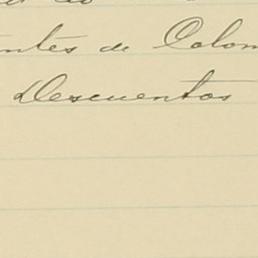 ntes de Colom
Descuentos